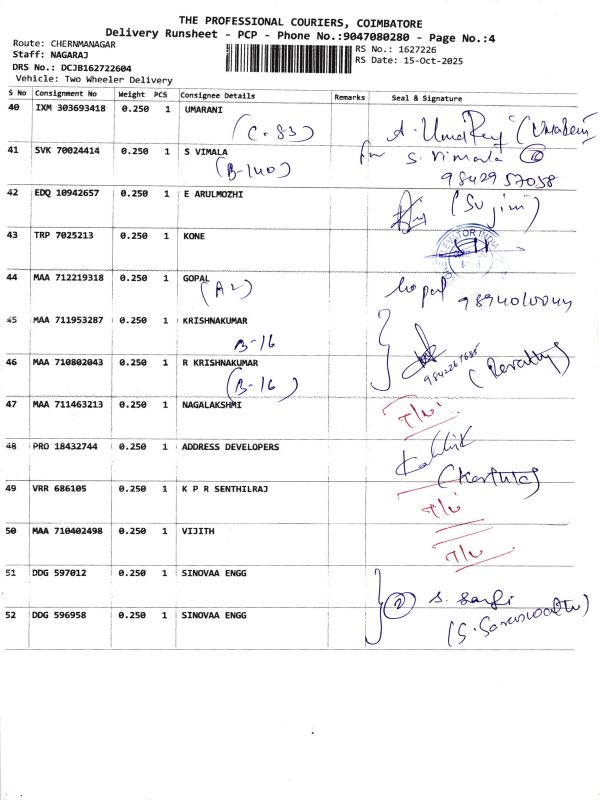 THE PROFESSIONAL COURIERS, COIMBATORE
Delivery Runsheet - PCP - Phone No.:9047080280 - Page No.:4
Route: CHERNMANAGAR
RS No.: 1627226
Staff: NAGARAJ
RS Date: 15-Oct-2025
DRS No.: DCJB162722604
Vehicle: Two Wheeler Delivery
S No Consignment No Weight PCS Consignee Details Remarks Seal & Signature
40 IXM 303693418 0.250 1 UMARANI
(C-83)
41 SVK 70024414 0.250 1 S VIMALA for S. Vimala
(B-140) 9842957058
42 EDQ 10942657 0.250 1 E ARULMOZHI (Sujini)
43 TRP 7025213 0.250 1 KONE ELEVATOR INDIA
44 MAA 712219318 0.250 1 GOPAL Gopal
(A2) 9894010044
45 MAA 711953287 0.250 1 KRISHNAKUMAR
B-16
46 MAA 710802043 0.250 1 R KRISHNAKUMAR
(B-16)
47 MAA 711463213 0.250 1 NAGALAKSHMI
48 PRO 18432744 0.250 1 ADDRESS DEVELOPERS
49 VRR 686105 0.250 1 K P R SENTHILRAJ
50 MAA 710402498 0.250 1 VIJITH
51 DDG 597012 0.250 1 SINOVAA ENGG 2
52 DDG 596958 0.250 1 SINOVAA ENGG